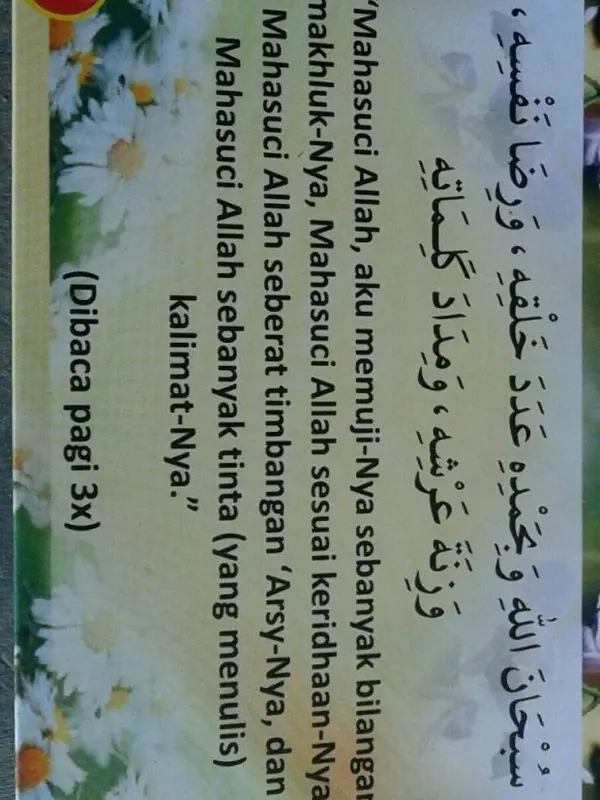 سُبْحَانَ اللهِ وَبِحَمْدِهِ عَدَدَ خَلْقِهِ، وَرِضَا نَفْسِهِ،
وَزِنَةَ عَرْشِهِ، وَمِدَادَ كَلِمَاتِهِ
“Mahasuci Allah, aku memuji-Nya sebanyak bilangan
makhluk-Nya, Mahasuci Allah sesuai keridhaan-Nya
Mahasuci Allah seberat timbangan ‘Arsy-Nya, dan
Mahasuci Allah sebanyak tinta (yang menulis)
kalimat-Nya.”
(Dibaca pagi 3x)